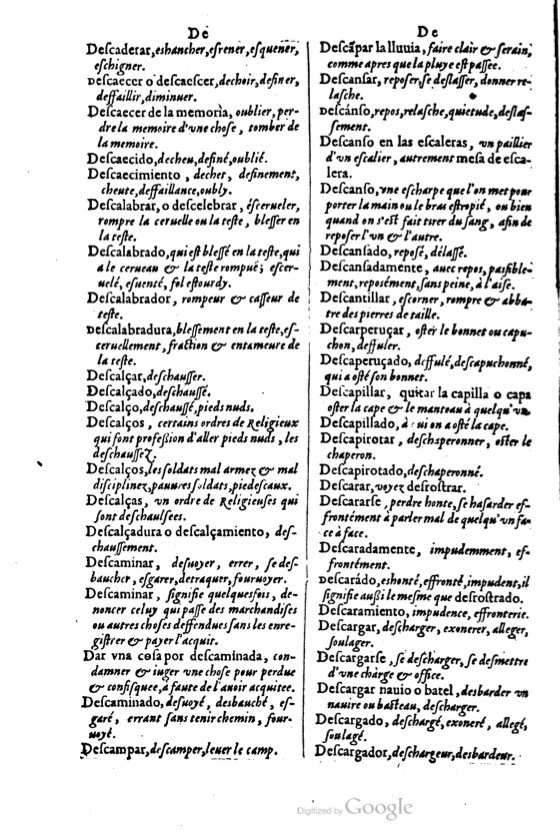 De
Deſcaderar, eshancher, esrener, esquener,
eſchigner.
Deſcaecer o deſcaeſcer, dechoir, definer,
deffaillir, diminuer.
Deſcaecer de la memoria, oublier, per-
dre la memoire d'vne choſe, tomber de
la memoire.
Deſcaecido, decheu, definé, oublié.
Deſcaecimiento, dechet, definement,
cheute, deffaillance, oubly.
Deſcalabrar, o deſcelebrar, éſcerueler,
rompre la ceruelle ou la teſte, bleſſer en
la teſte.
Deſcalabrado, qui eſt bleſſé en la teſte, qui
a le cerueau & la teſte rompuë; eſcer-
uelé, eſuenté, fol eſtourdy.
Deſcalabrador, rompeur & caſſeur de
teſte.
Deſcalabradura, bleſſement en la teſte, eſ-
ceruellement, fraction & entameure de
la teſte.
Deſcalçar, deſchauſſer.
Deſcalçado, deſchauſſé.
Deſcalço, deſchauſſé, pieds nuds.
Deſcalços, certains ordres de Religieux
qui font profeſſion d'aller pieds nuds, les
deſchauſſez.
Deſcalços, les ſoldats mal armez & mal
diſciplinez, pauures ſoldats, piedeſcaux.
Deſcalças, vn ordre de Religieuſes qui
ſont deſchaulſees.
Deſcalçadura o deſcalçamiento, deſ-
chauſſement.
Deſcaminar, deſuoyer, errer, ſe deſ-
baucher, eſgarer, detraquer, fouruoyer.
Deſcaminar, ſignifie quelquesfois, de-
noncer celuy qui paſſe des marchandiſes
ou autres choſes deffendues ſans les enre-
giſtrer & payer l'acquit.
Dar vna coſa por deſcaminada, con-
damner & iuger vne choſe pour perdue
& confiſquee, à faute de l'auoir acquitee.
Deſcaminado, deſuoyé, desbauché, eſ-
garé, errant ſans tenir chemin, four-
uoyé.
Deſcampar, deſcamper, leuer le camp.
De
Deſcãpar la lluuia, faire clair & ſerain,
comme apres que la pluye eſt paſſee.
Deſcanſar, repoſer, ſe delaſſer, donner re-
laſche.
Deſcánſo, repos, relaſche, quietude, deſlaſ-
ſement.
Deſcanſo en las eſcaleras, vn paillier
d'vn eſcalier, autrement meſa de eſca-
lera.
Deſcanſo, vne eſcharpe que l'on met pour
porter la main ou le bras eſtropié, ou bien
quand on s'eſt fait tirer du ſang, afin de
repoſer l'vn & l'autre.
Deſcanſado, repoſé, délaſſé.
Deſcanſadamente, auec repos, paiſible-
ment, repoſément, ſans peine, à l'aiſe.
Deſcantillar, eſcorner, rompre & abba-
tre des pierres de taille.
Deſcarperuçar, oſter le bonnet ou capu-
chon, deffuler.
Deſcaperuçado, deffulé, deſcapuchonné,
qui a oſté ſon bonnet.
Deſcapillar, quitar la capilla o capa
oſter la cape & le manteau à quelqu'vn
Deſcapillado, à qui on a oſté la cape.
Deſcapirotar, deſchaperonner, oſter le
chaperon.
Deſcapirotado, deſchaperonné.
Deſcarar, voyez deſroſtrar.
Deſcararſe, perdre honte, ſe haſarder eſ-
frontément à parler mal de quelqu'vn fa-
ce à face.
Deſcaradamente, impudemment, eſ-
frontément.
Deſcarádo, eshonté, effronté, impudent, il
ſignifie auſſi le meſme que deſroſtrado.
Deſcaramiento, impudence, effronterie.
Deſcargar, deſcharger, exonerer, alleger,
ſoulager.
Deſcargarſe, ſe deſcharger, ſe deſmettre
d'vne charge & office.
Deſcargar nauio o batel, desbarder vn
nauire ou baſteau, deſcharger.
Deſcargado, deſchargé, exoneré, allegé,
ſoulagé.
Deſcargador, deſchargeur, desbardeur.
Digitized by Google